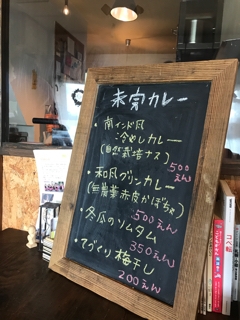 未完カレー
・南インド風
冷やしカレー
(自然栽培ナス)
500
えん
・和風グリンカレー
(無農薬赤皮かぼちゃ)
500えん
・冬瓜のソムタム
350えん
・てづくり梅干し
200えん
コペ転